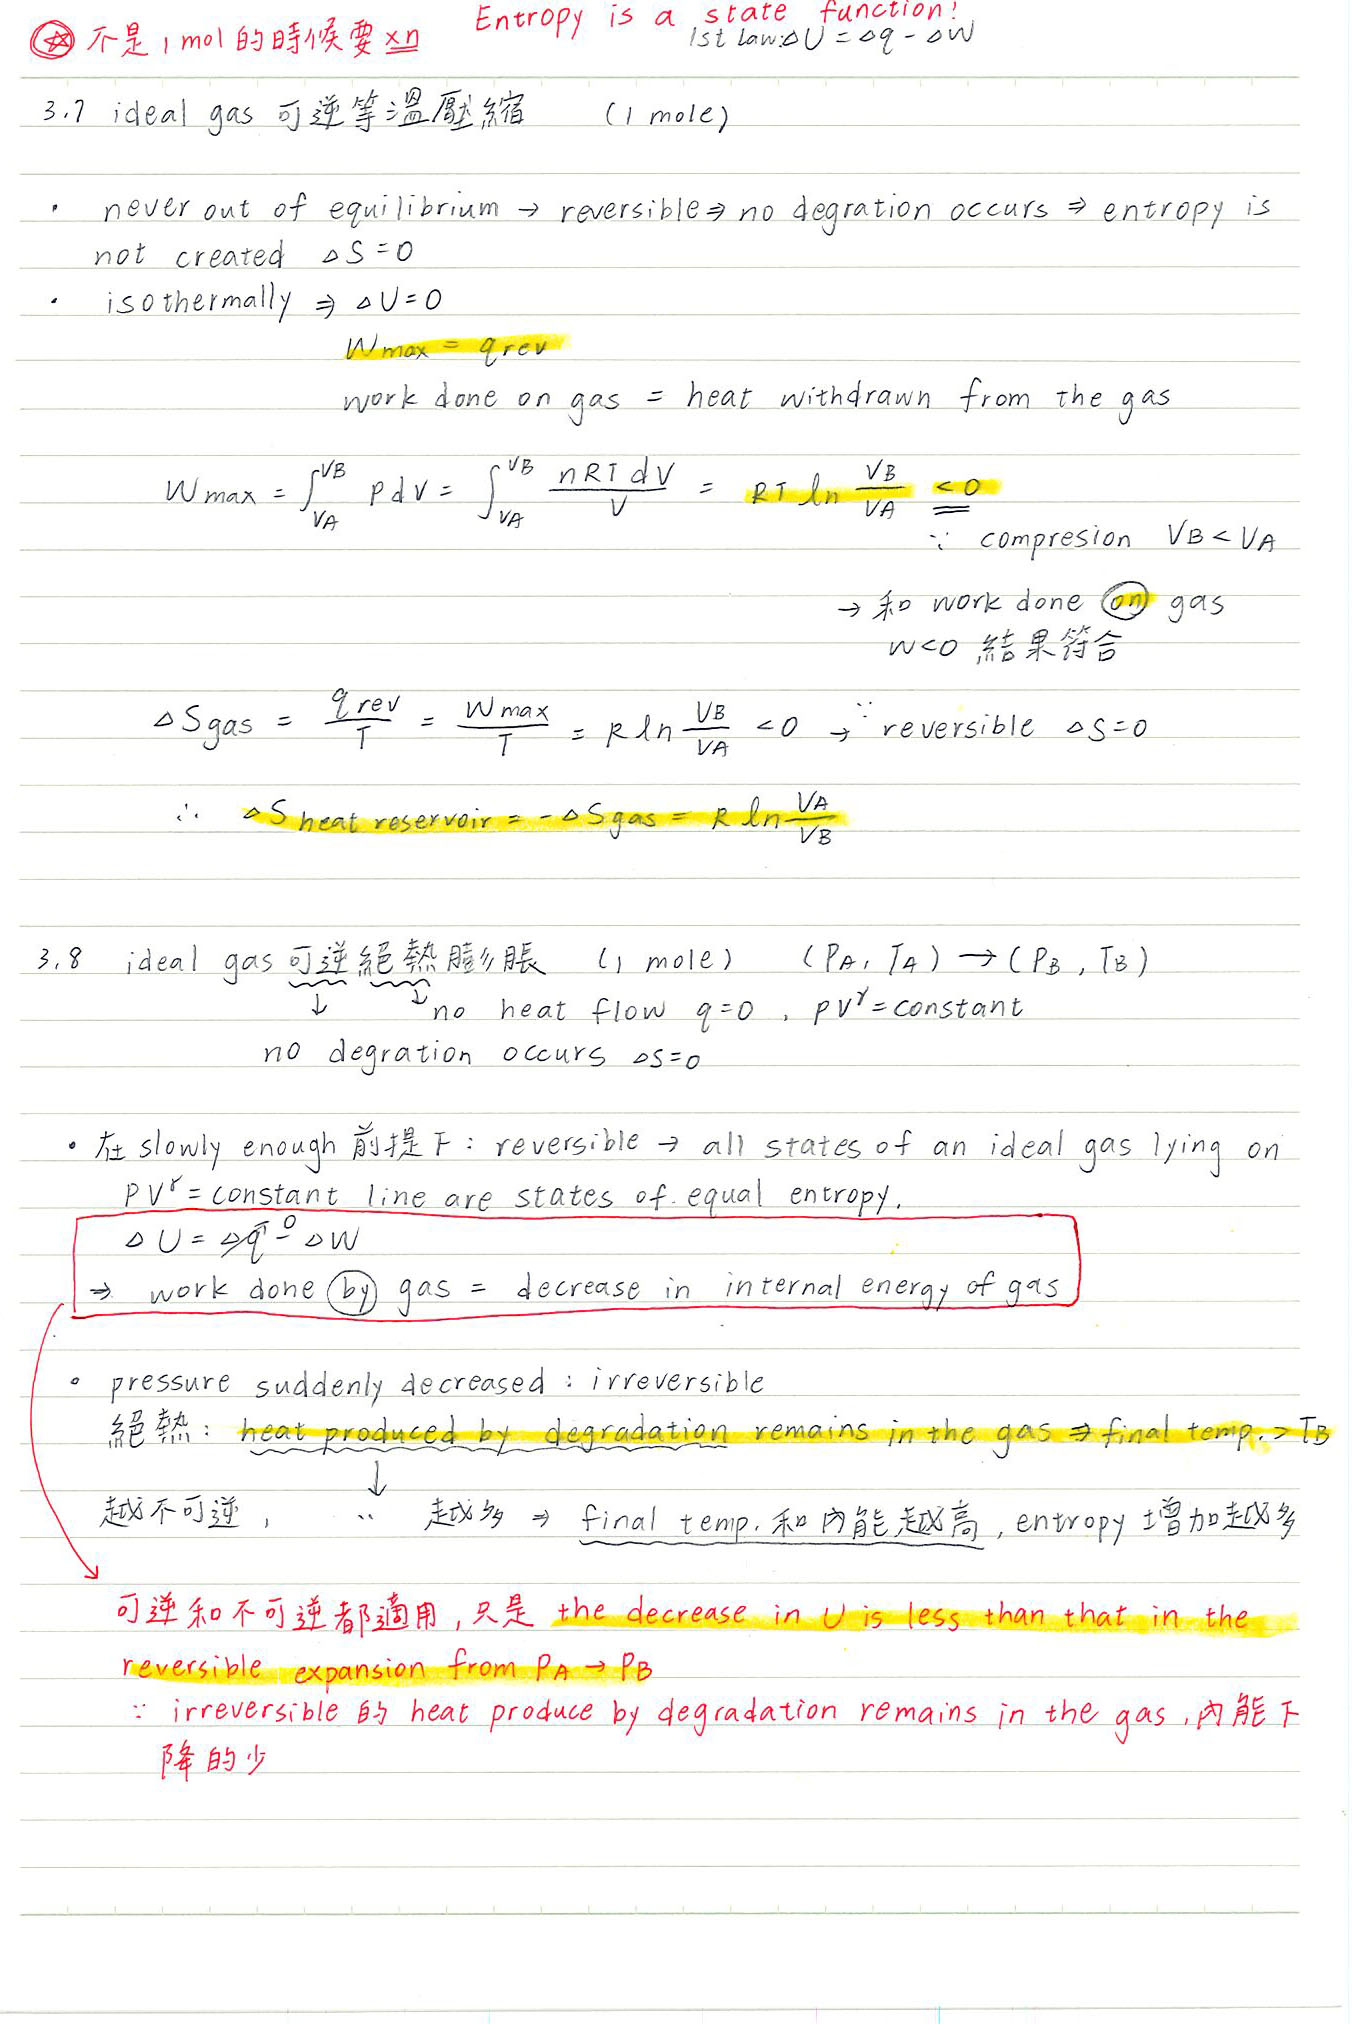 Entropy is a state function!
☆ 不是 1 mol 的時候要 ×n
1st law: ΔU = Δq - ΔW
3.7 ideal gas 可逆等溫壓縮 (1 mole)
· never out of equilibrium → reversible ⇒ no degration occurs ⇒ entropy is
not created ΔS=0
· isothermally ⇒ ΔU=0
Wmax = qrev
work done on gas = heat withdrawn from the gas
Wmax = ∫_VA^VB PdV = ∫_VA^VB nRTdV/V = RT ln VB/VA <0
∵ compresion VB<VA
→ 和 work done on gas
w<0 結果符合
ΔSgas = qrev/T = Wmax/T = R ln VB/VA <0 → ∵ reversible ΔS=0
∴ ΔS heat reservoir = -ΔSgas = R ln VA/VB
3.8 ideal gas 可逆絕熱膨脹 (1 mole) (PA, TA) → (PB, TB)
↓ ↓ no heat flow q=0, PV^γ=constant
no degration occurs ΔS=0
· 在 slowly enough 前提下: reversible → all states of an ideal gas lying on
PV^γ=constant line are states of equal entropy.
ΔU = Δq^0 - ΔW
⇒ work done by gas = decrease in internal energy of gas
· pressure suddenly decreased: irreversible
絕熱: heat produced by degradation remains in the gas ⇒ final temp. > TB
↓
越不可逆, ‥ 越多 ⇒ final temp. 和內能越高, entropy 增加越多
可逆和不可逆都適用, 只是 the decrease in U is less than that in the
reversible expansion from PA → PB
∵ irreversible 的 heat produce by degradation remains in the gas, 內能下
降的少